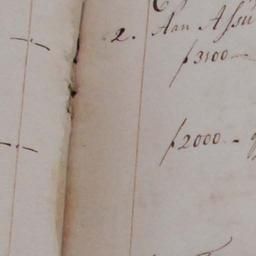 2. Aan Assu
ƒ3100—
ƒ2000 –